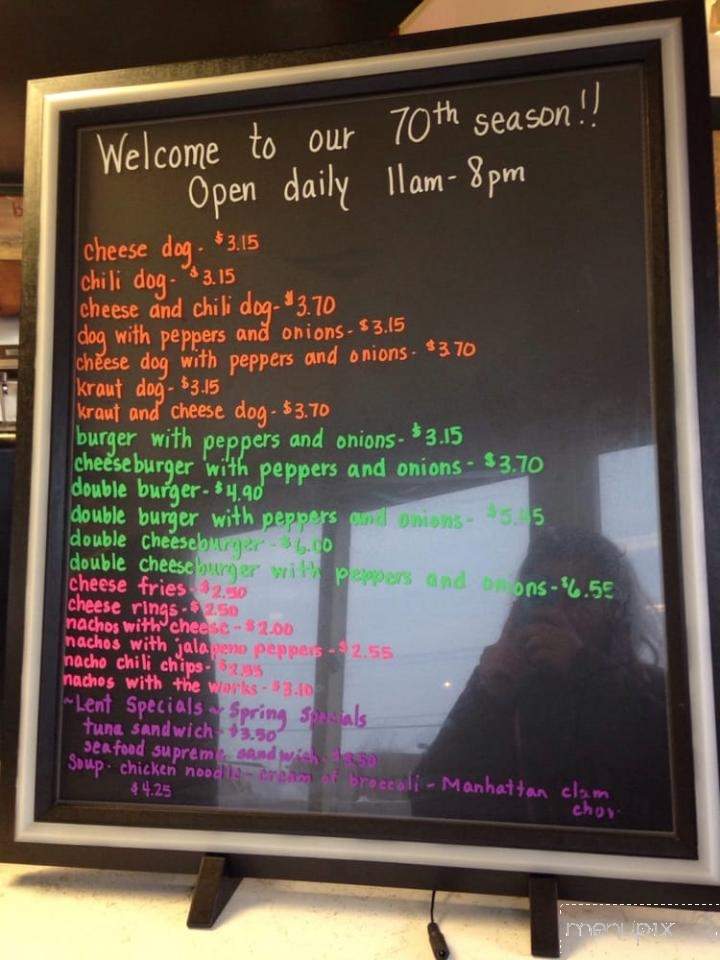 Welcome to our 70th season!!
Open daily 11am-8pm
cheese dog- $3.15
chili dog- $3.15
cheese and chili dog- $3.70
dog with peppers and onions- $3.15
cheese dog with peppers and onions- $3.70
kraut dog- $3.15
kraut and cheese dog- $3.70
burger with peppers and onions- $3.15
cheeseburger with peppers and onions- $3.70
double burger- $4.90
double burger with peppers and onions- $5.45
double cheeseburger- $6.00
double cheeseburger with peppers and onions- $6.55
cheese fries- $2.50
cheese rings- $2.50
nachos with cheese- $2.00
nachos with jalapeno peppers- $2.55
nacho chili chips-
nachos with the works- $3.10
~Lent Specials~ Spring Specials
tuna sandwich- $3.50
seafood supreme sandwich- $3.50
Soup- chicken noodle- cream of broccoli- Manhattan clam
$4.25 chow-
menupix